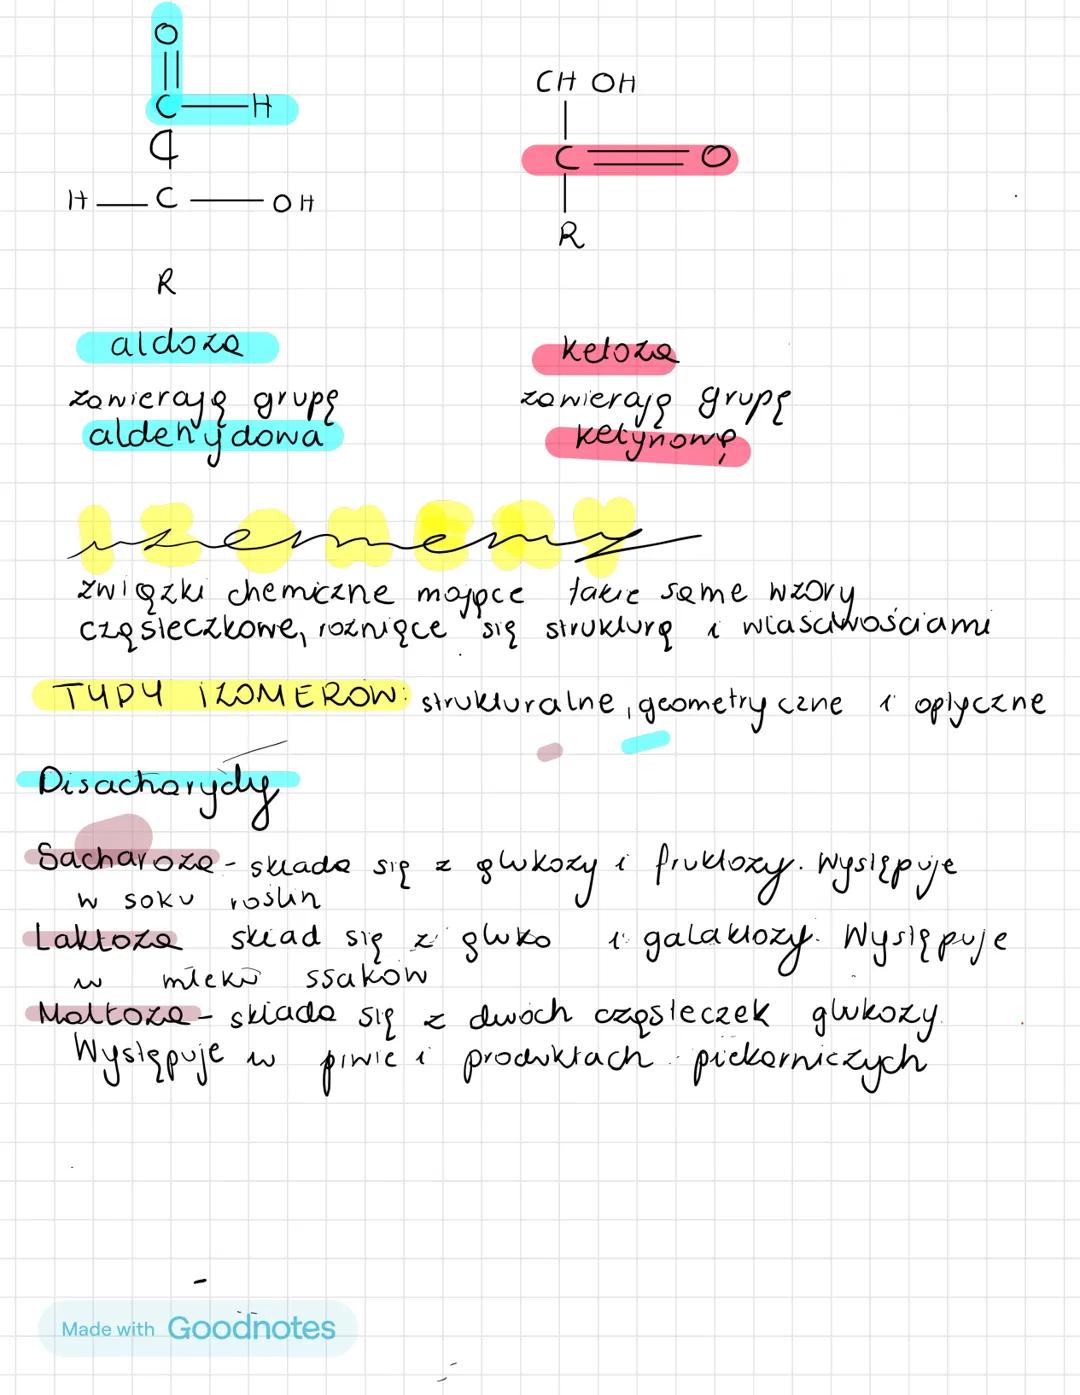 O
C H
C
H C OH
R
CH OH
C O
R
aldoza
zawierają grupę
aldehydowa
ketoza
zawierają grupę
ketynową
związki chemiczne mające takie same wzory
cząsteczkowe, rożniące się strukturą i właściwościami
TYPY IZOMERÓW: strukturalne, geometryczne i optyczne
Disacharydy
Sacharoza - składa się z glukozy i fruktozy. Występuje
w soku roślin
Laktoza skład się z gluko i galaktozy. Występuje
w mleku ssaków
Maltoza - składa się z dwóch cząsteczek glukozy.
Występuje w piwie i produktach piekarniczych
Made with Goodnotes